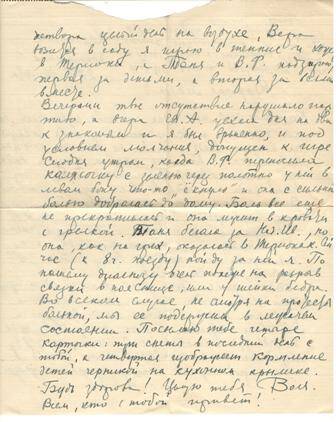 четвера целый день на воздухе, Вера
возится в саду я играю в теннис и хожу
в Териоки, а Таня и В.Г. надзирают
первая за детьми, а вторая за всеми
и везде.
Вечерами твое отсутствие нарушило пар-
тию, а вчера М.А. уехал дня на два
к знакомым и я был временно, и под
условием молчания, допущен к игре
Сегодня утром, когда В.Г. приносила
картошку с
левом боку что-то и она с сильной
болью добралась до дому. Боль все еще
не прекратилась и она лежит в кровати
с грелкой. Таня бегала за Ив., но
она, как на грех, оказалась в Териоках. Сей-
час (к 8 г. поезду) пойду за ней я. По
нашему диагнозу это похоже на разрыв
связки в пояснице, или у шейки бедра.
Во всяком случае, не смотря на протесты
больной, мы ее подержим в лежачем
состоянии. Посылаю тебе четыре
карточки: три снеты в последний день с
тобой, а четвертая изображает кормление
детей черникой на кухонном крылечке.
Будь здорова! Целую тебя, Воля.
Всем, кто с тобой привет!